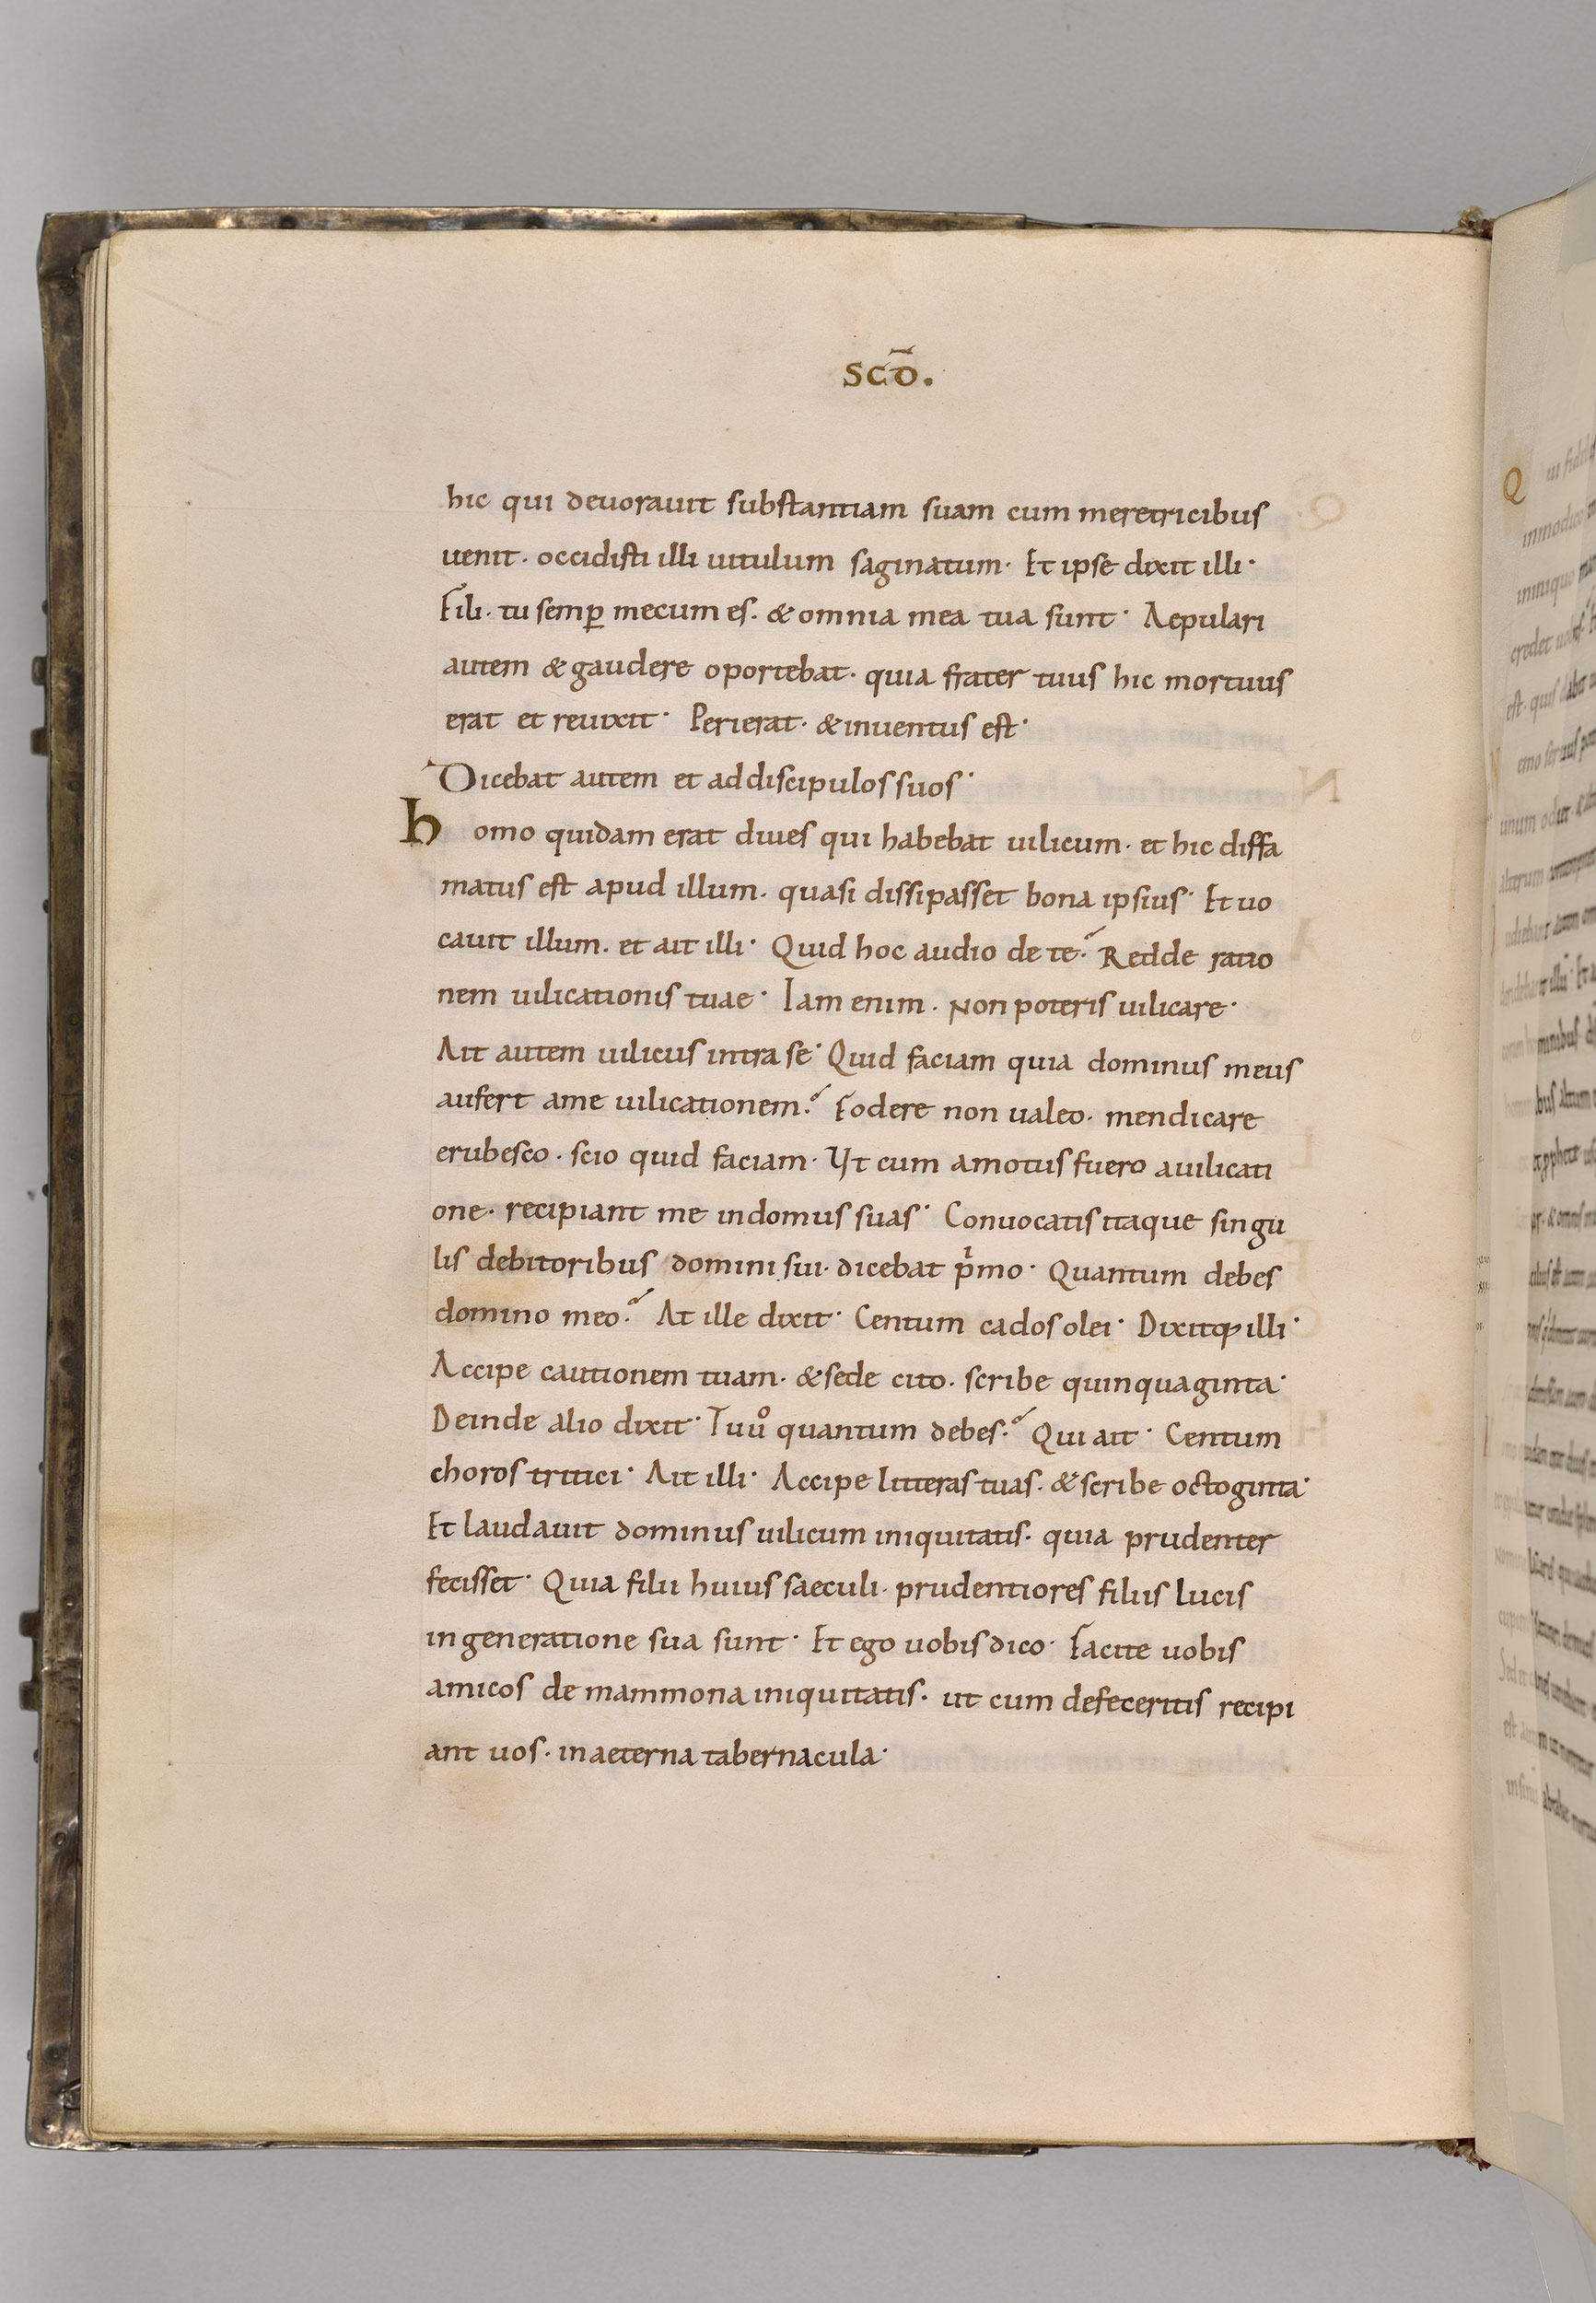 SCD̄.
hic qui deuorauit substantiam suam cum meretricibus
uenit · occidisti illi uitulum saginatum · Et ipse dixit illi ·
Fili · tu semꝑ mecum es · & omnia mea tua sunt · Aepulari
autem & gaudere oportebat · quia frater tuus hic mortuus
erat et reuixit · Perierat · & inuentus est ·
Dicebat autem et ad discipulos suos ·
homo quidam erat diues qui habebat uilicum · et hic diffa
matus est apud illum · quasi dissipasset bona ipsius · Et uo
cauit illum · et ait illi · Quid hoc audio de te? Redde ratio
nem uilicationis tuae · Iam enim · Non poteris uilicare ·
Ait autem uilicus intra se · Quid faciam quia dominus meus
aufert ame uilicationem? Fodere non ualeo · mendicare
erubesco · scio quid faciam · Vt cum amotus fuero auilicati
one · recipiant me in domus suas · Conuocatis itaque singu
lis debitoribus domini sui · dicebat pͥmo · Quantum debes
domino meo? At ille dixit · Centum cados olei · Dixitqꝫ illi ·
Accipe cautionem tuam · & sede cito · scribe quinquaginta ·
Deinde alio dixit · Tu uͦ quantum debes? Qui ait · Centum
choros tritici · Ait illi · Accipe litteras tuas · & scribe octoginta ·
Et laudauit dominus uilicum iniquitatis · quia prudenter
fecisset · Quia filii huius saeculi · prudentiores filiis lucis
in generatione sua sunt · Et ego uobis dico · Facite uobis
amicos de mammona iniquitatis · ut cum defeceritis recipi
ant uos · in aeterna tabernacula ·